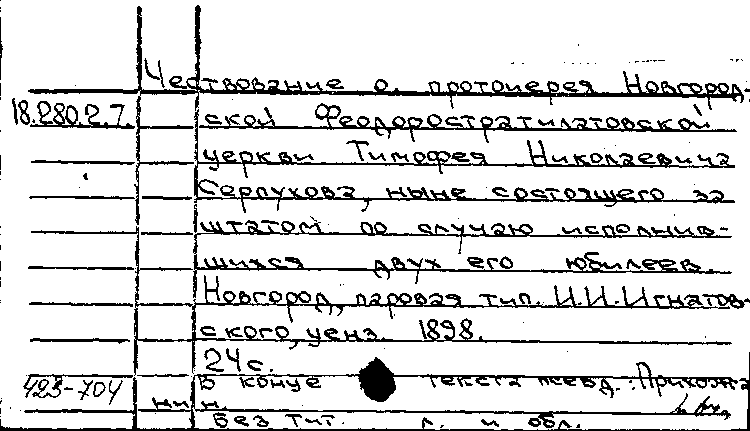 Чествование о. протоиерея Новгород-
18.280.2.7. ской Феодоростратилатовской
церкви Тимофея Николаевича
Серпухова, ныне состоящего за
штатом по случаю исполнив-
шихся двух его юбилеев.
Новгород, паровая тип. И.И. Игнатов-
ского, ценз. 1898.
24 с.
423-704 В конце текста псевд.: Прихожа-
нин.
Без тит. л. и обл.